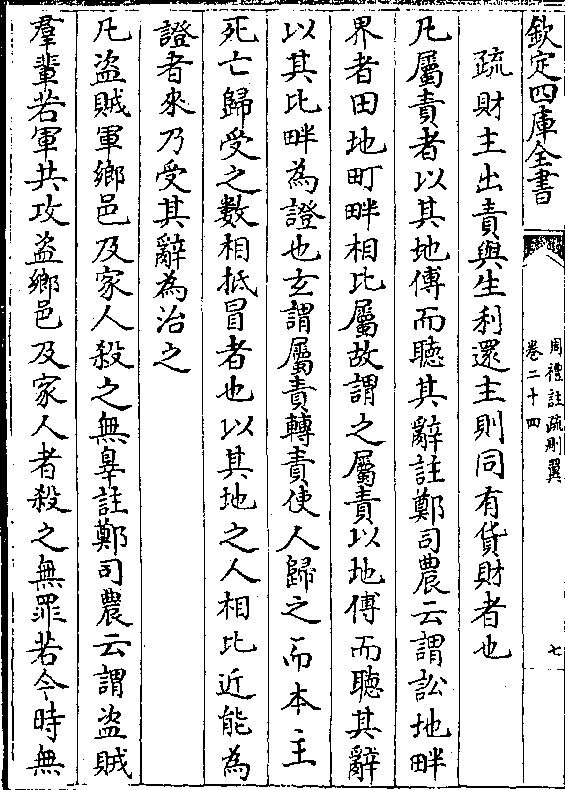 欽定四庫全書
周禮註疏刪翼
卷二十四
七
疏財主出責與生利還主則同有貨財者也
凡屬責者以其地傅而聽其辭註鄭司農云謂訟地畔
界者田地町畔相比屬故謂之屬責以地傅而聽其辭
以其比畔為證也玄謂屬責轉責使人歸之而本主
死亡歸受之數相抵冒者也以其地之人相比近能為
證者來乃受其辭為治之
凡盜賊軍鄉邑及家人殺之無辠註鄭司農云謂盜賊
羣輩若軍共攻盜鄉邑及家人者殺之無罪若今時無